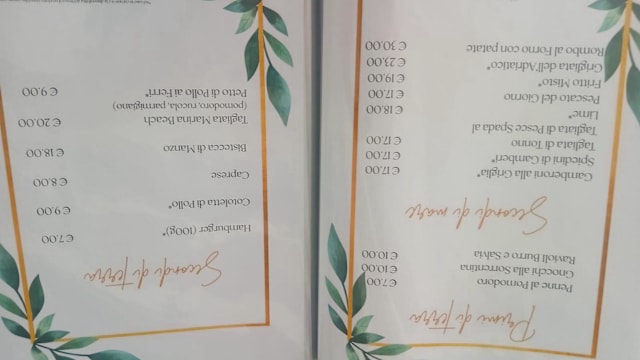 Primi di terra
Penne al Pomodoro € 7.00
Gnocchi alla Sorrentina € 10.00
Ravioli Burro e Salvia € 10.00
Secondi di mare
Gamberoni alla Griglia* € 17.00
Spiedini di Gamberi* € 17.00
Tagliata di Tonno € 17.00
Tagliata di Pesce Spada al
Lime* € 18.00
Pescato del Giorno € 17.00
Fritto Misto* € 19.00
Grigliata dell'Adriatico* € 23.00
Rombo al Forno con patate € 30.00
Secondi di terra
Hamburger (100g)* € 7.00
Cotoletta di Pollo* € 9.00
Caprese € 8.00
Bistecca di Manzo € 18.00
Tagliata Marina Beach € 20.00
(pomodoro, rucola, parmigiano)
Petto di Pollo ai Ferri* € 9.00